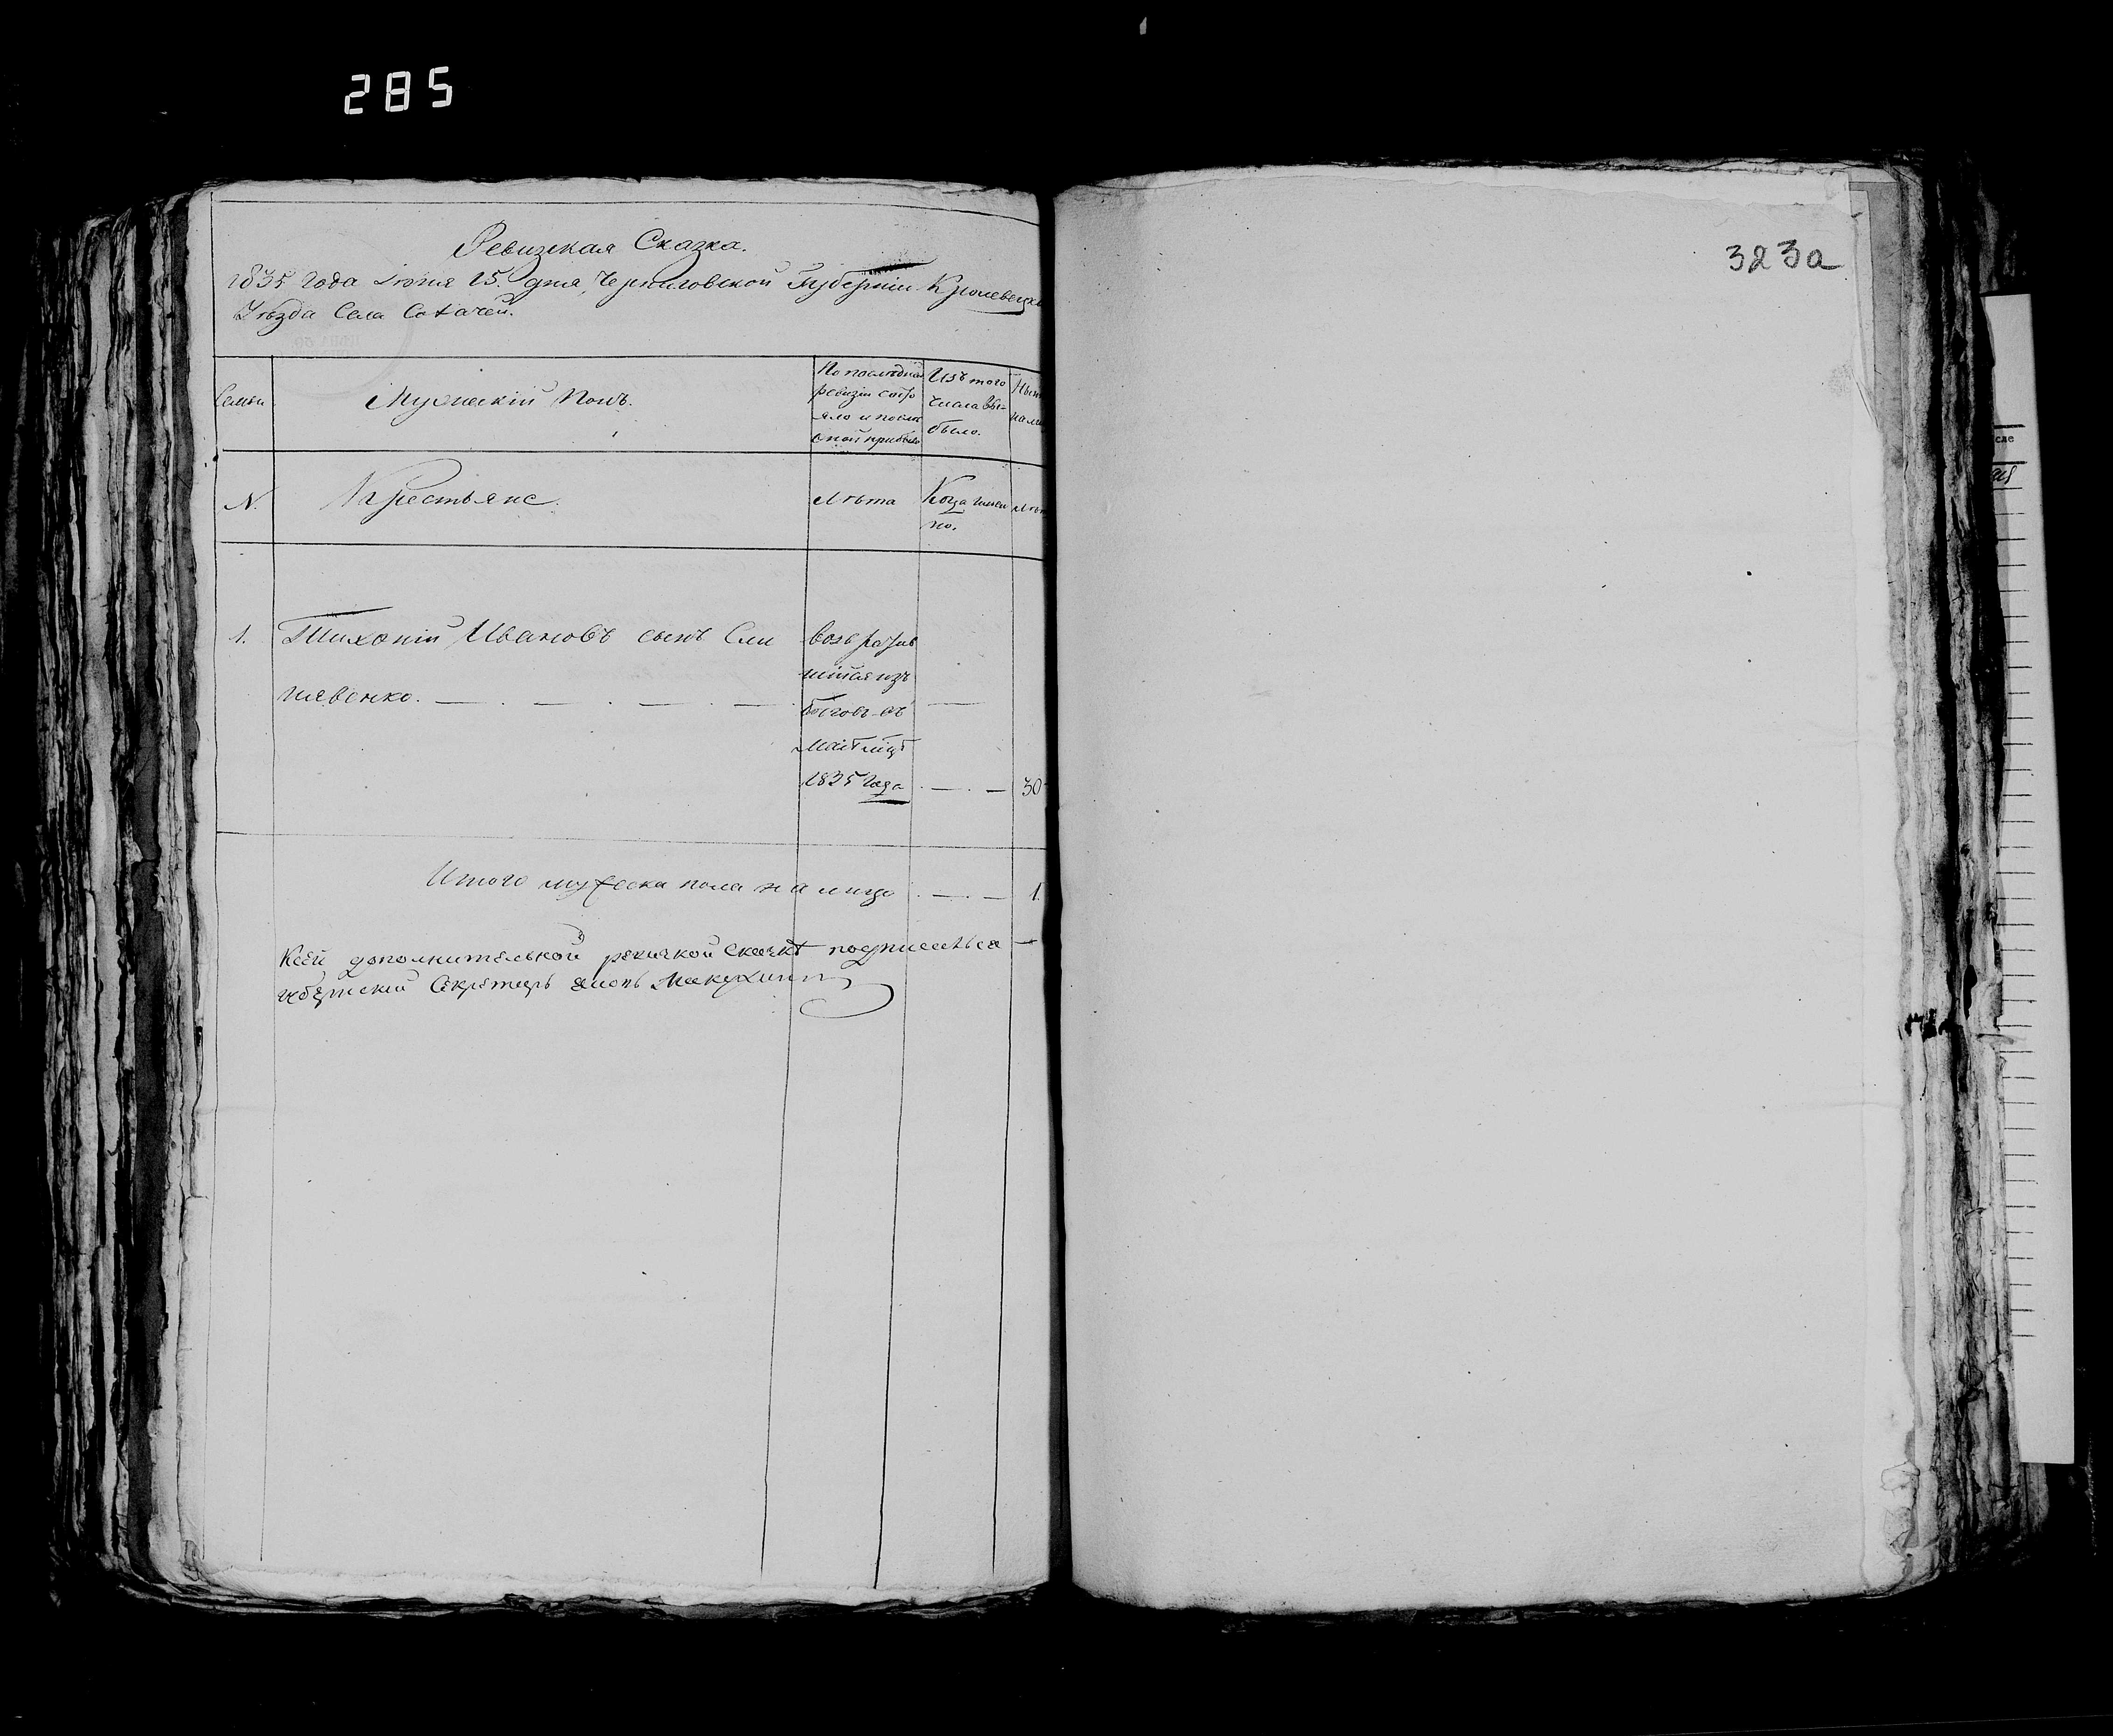 285
323а
Ревизская Сказка.
1835 года Июня 15. дня, Черниговской Губернии Кролевецк
Уезда Села Собачей.
Семьи
Мужескій Полъ.
По последней
ревизіи состо
яло и после
оной прибыло
Изъ того
числа вы-
было.
Ныне
на ли
N.
Крестьяне.
Лѣта
Когда имен
но.
Лѣт
1.
Тихоній Ивановъ сынъ Сли
возврати
вшійся изъ
бѣговъ въ
Маіѣ мцѣ
1835 года
30
Итого мужеска пола на лицо
1.
К сей дополнительной ревизкой сказкѣ подписался
губернский Секретарь
сле